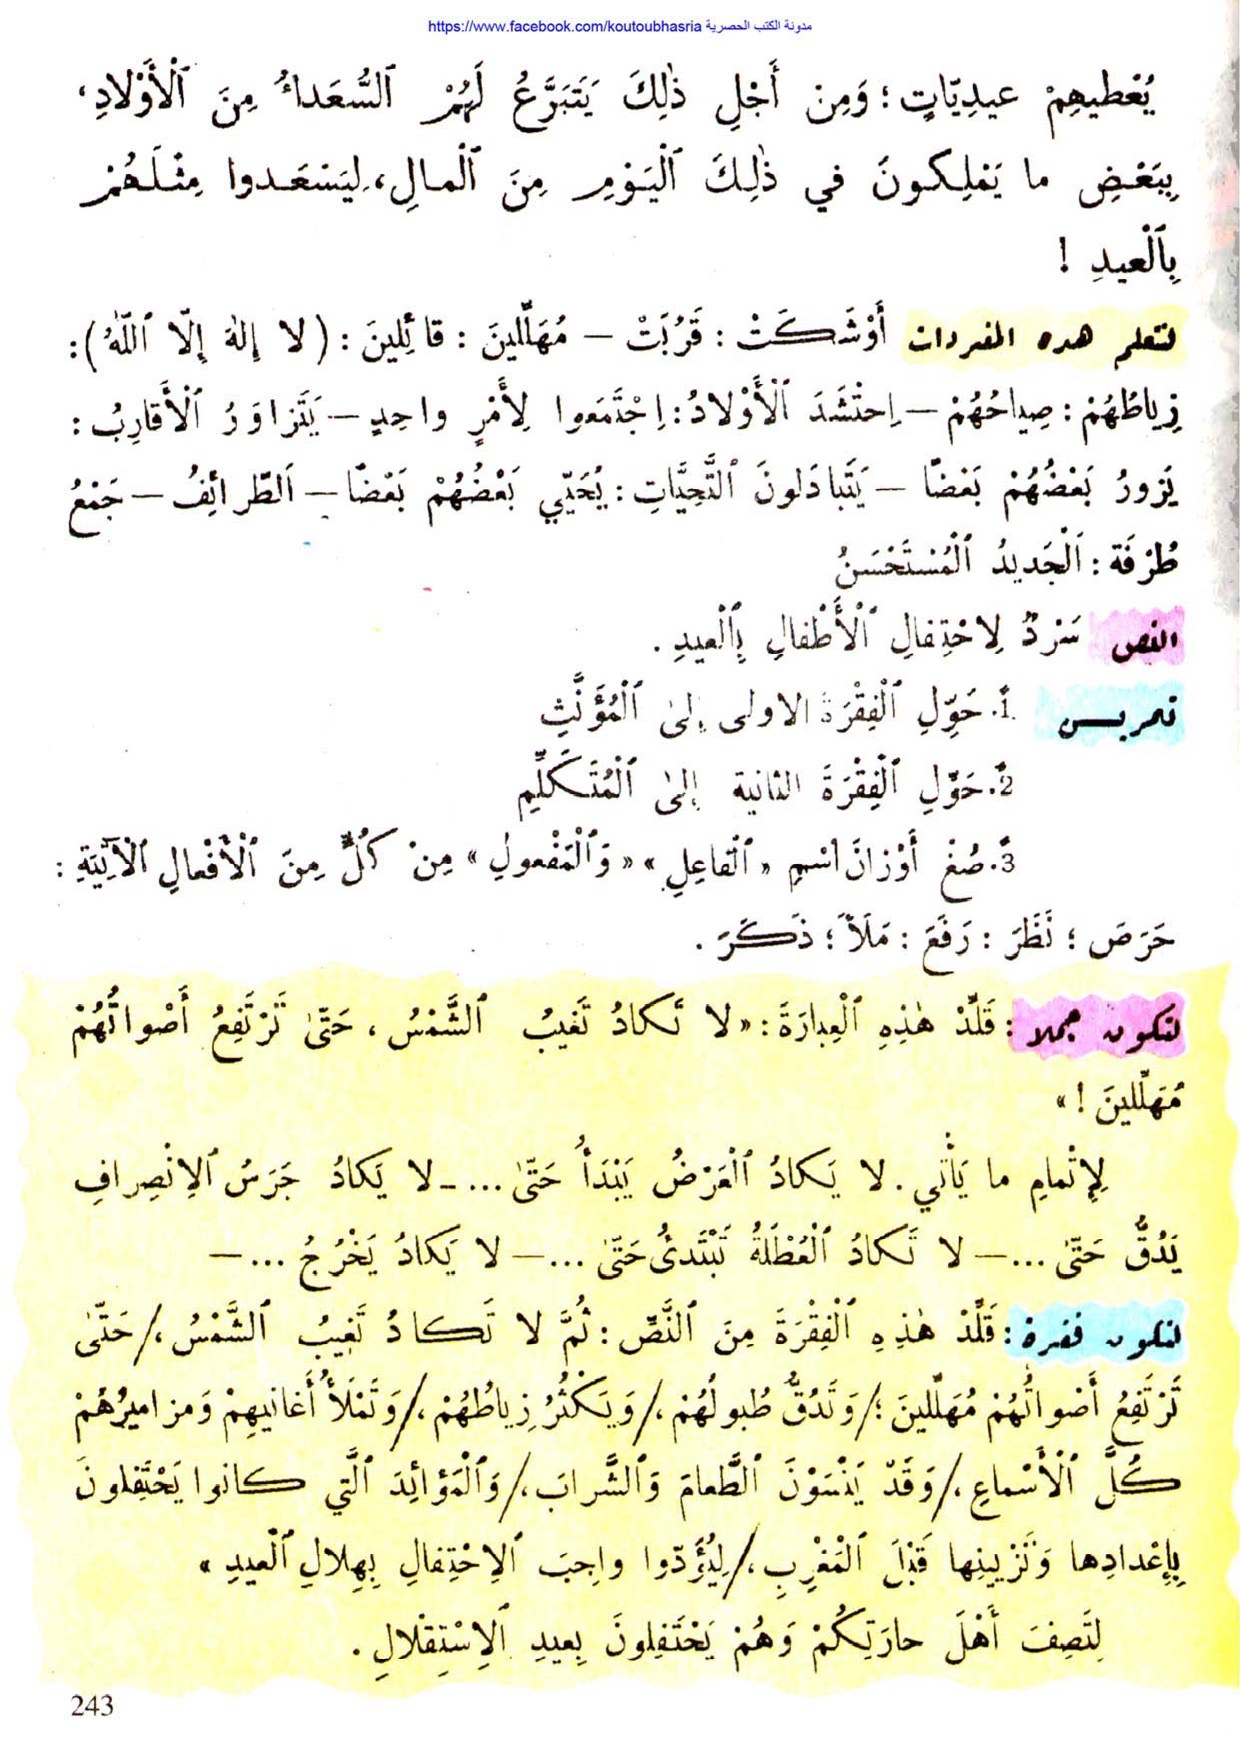 مدونة الكتب الحصرية https://www.facebook.com/koutoubhasria
يُعْطيهِمْ عيدِيّاتٍ ؛ وَمِنْ أَجْلِ ذٰلِكَ يَتَبَرَّعُ لَهُمْ ٱلسُّعَداءُ مِنَ ٱلْأَوْلادِ،
بِبَعْضِ ما يَمْلِكونَ في ذٰلِكَ ٱلْيَوْمِ مِنَ ٱلْمالِ، لِيَسْعَدوا مِثْلَهُمْ
بِٱلْعيدِ !
لنتعلم هده المفردات أَوْشَكَتْ : قَرُبَتْ — مُهَلِّلينَ : قائِلينَ : (لا إِلٰهَ إِلّا ٱللّٰهُ) :
زِياطُهُمْ : صِياحُهُمْ — اِحْتَشَدَ ٱلْأَوْلادُ : اِجْتَمَعوا لِأَمْرٍ واحِدٍ — يَتَزاوَرُ ٱلْأَقارِبُ :
يَزورُ بَعْضُهُمْ بَعْضًا — يَتَبادَلونَ ٱلتَّحِيَّاتِ : يُحَيّي بَعْضُهُمْ بَعْضًا — اَلطَّرائِفُ — جَمْعُ
طُرْفَة : اَلْجَديدُ ٱلْمُسْتَحْسَنُ
النص سَرْدٌ لِاحْتِفالِ ٱلْأَطْفالِ بِٱلْعيدِ .
تمريـن 1. حَوِّلِ ٱلْفِقْرَةَ الاولى إِلىٰ ٱلْمُؤَنَّثِ
2. حَوِّلِ ٱلْفِقْرَةَ الثانية إِلىٰ ٱلْمُتَكَلِّمِ
3. صُغْ أَوْزانَ اسْمِ « ٱلْفاعِلِ » « وَٱلْمَفْعولِ » مِنْ كُلٍّ مِنَ ٱلْأَفْعالِ ٱلْآتِيَةِ :
حَرَصَ ؛ نَظَرَ : رَفَعَ : مَلَأَ ؛ ذَكَرَ .
لنكون جملا : قَلِّدْ هٰذِهِ ٱلْعِبارَةَ : « لا تَكادُ تَغيبُ ٱلشَّمْسُ ، حَتّىٰ تَرْتَفِعُ أَصْواتُهُمْ
مُهَلِّلينَ ! »
لِإِتْمامِ ما يَأْتي . لا يَكادُ ٱلْعَرْضُ يَبْدَأُ حَتّىٰ ... — لا يَكادُ جَرَسُ ٱلِانْصِرافِ
يَدُقُّ حَتّىٰ ... — لا تَكادُ ٱلْعُطْلَةُ تَبْتَدِئُ حَتّىٰ ... — لا يَكادُ يَخْرُجُ ... —
لنكون فقرة : قَلِّدْ هٰذِهِ ٱلْفِقْرَةَ مِنَ ٱلنَّصِّ : ثُمَّ لا تَكادُ تَغيبُ ٱلشَّمْسُ ،/ حَتّىٰ
تَرْتَفِعُ أَصْواتُهُمْ مُهَلِّلينَ ؛/ وَتَدُقُّ طُبولُهُمْ ،/ وَيَكْثُرُ زِياطُهُمْ ،/ وَتَمْلَأُ أَغانيهِمْ وَمزاميرُهُمْ
كُلَّ ٱلْأَسْماعِ ،/ وَقَدْ يَنْسَوْنَ ٱلطَّعامَ وَٱلشَّرابَ ،/ وَٱلْمَوْائِدَ ٱلَّتي كانوا يَحْتَفِلونَ
بِإِعْدادِها وَتَزْيينِها قَبْلَ ٱلْمَغْرِبِ ،/ لِيُؤَدّوا واجِبَ ٱلِاحْتِفالِ بِهِلالِ ٱلْعيدِ »
لِتَصِفَ أَهْلَ حارَتِكُمْ وَهُمْ يَحْتَفِلونَ بِعيدِ ٱلِاسْتِقْلالِ .
243